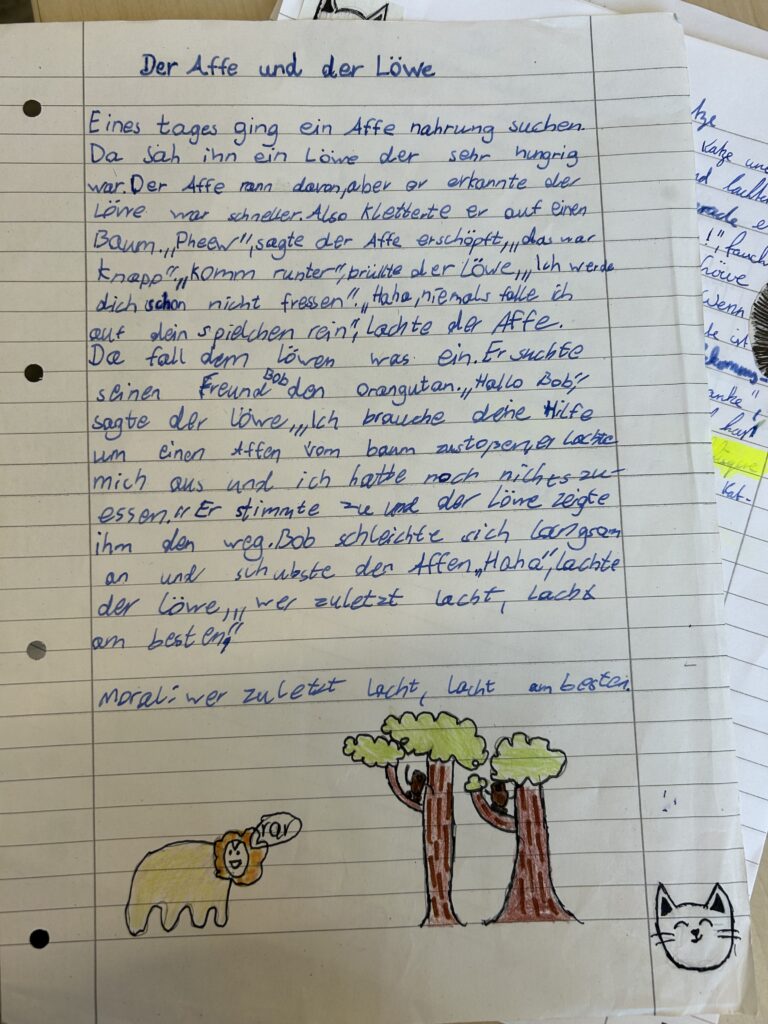 Der Affe und der Löwe
Eines tages ging ein Affe nahrung suchen.
Da sah ihn ein Löwe der sehr hungrig
war. Der Affe rann davon, aber er erkannte der
Löwe war schneller. Also kletterte er auf einen
Baum. „Pheew", sagte der Affe erschöpft, „das war
knapp". „Komm runter", brüllte der Löwe, „Ich werde
dich schon nicht fressen". „Haha, niemals falle ich
auf dein spielchen rein", lachte der Affe.
Da fall dem löwen was ein. Er suchte
seinen Freund Bob den orangutan. „Hallo Bob",
sagte der löwe, „Ich brauche deine Hilfe
um einen Affen vom baum zustoßen, er lachte
mich aus und ich hatte noch nichts zu-
essen." Er stimmte zu und der Löwe zeigte
ihm den weg. Bob schleichte sich langsam
an und schubste den Affen. „Haha", lachte
der löwe, „wer zuletzt lacht, lacht
am besten."
Moral: wer zuletzt lacht, lacht am besten.
rar
Katze und
lachte
fauch
Löwe
Wenn
ist
hast
Kat-